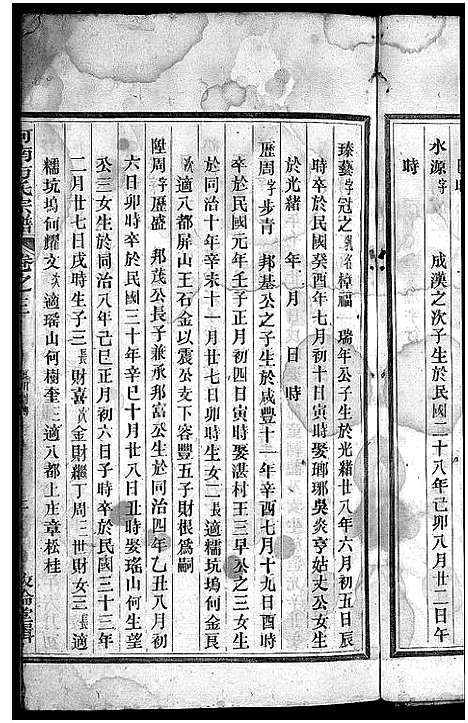 水源字　成漢之次子生於民國二十八年己卯八月二日午
時
臻藝字冠之乳名樟福　瑞年公子生於光緒廿八年六月初五日辰
時卒於民國癸酉年七月初十日寅時娶瑯琊吳炎亨姑丈公女生
於光緒　年　月　日　時
歷周字步青　邦基公之子生於咸豐十一年辛酉七月十九日酉時
卒於民國元年壬子正月初四日寅時娶湛村王三早公之三女生
於同治十年辛未十一月廿七日卯時生女二長適糯坑塢何金艮
次適八都屏山王石金以震公支下容豐五子財根爲嗣
陞周字歷盛　邦茂公長子兼承邦富公生於同治四年乙丑八月初
六日卯時卒於民國三十年辛巳十月廿八日丑時娶瑤山何生望
公三女生於同治八年己巳正月初六日子時卒於民國三十三年
二月廿七日戌時生子三長財喜次金財繼丁周三世財女三長適
糯坑塢何耀文次適瑤山何樹奎三適八都上庄章松桂
河南方氏宗譜　卷之三